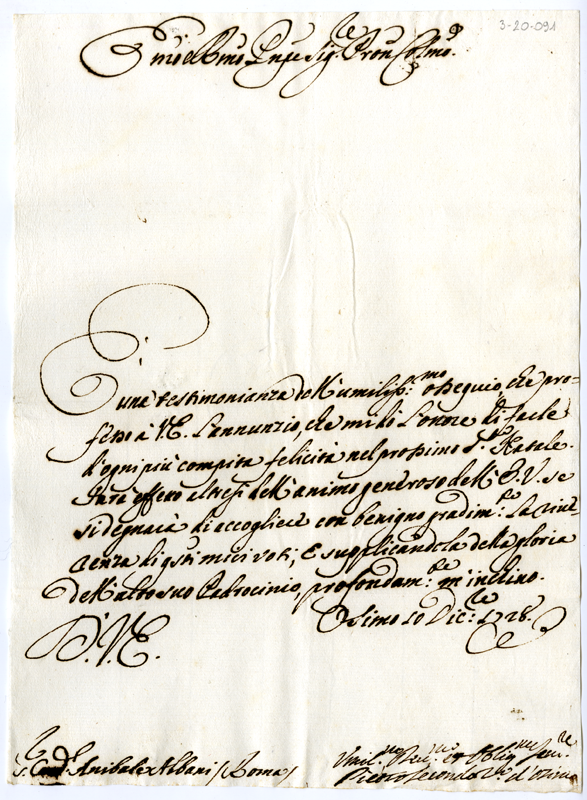 3-20-091
Em̃o e Rmõ Sig.re Pron Colmo.
È una testimonianza dell'umiliss:mo ossequio, che pro-
fesso à V.E. l'annunzio, che mi dò l'onore di farle
d'ogni più compita felicità nel prossimo S. Natale.
Sarà effetto altresì dell'animo generoso dell'E.V. se
si degnarà di accogliere con benigno gradim:to la
di q̃sti miei voti; E supplicandola della gloria
dell'alto suo Padrocinio, profondam:te m'inchino.
Osimo 10 Dic:re 1728.
D. V. E.
S. Card.le Anibale Albani (Roma)
Umil.mo Dev.mo et Oblig.mo Ser.re
Pietro Secondo d'Osimo